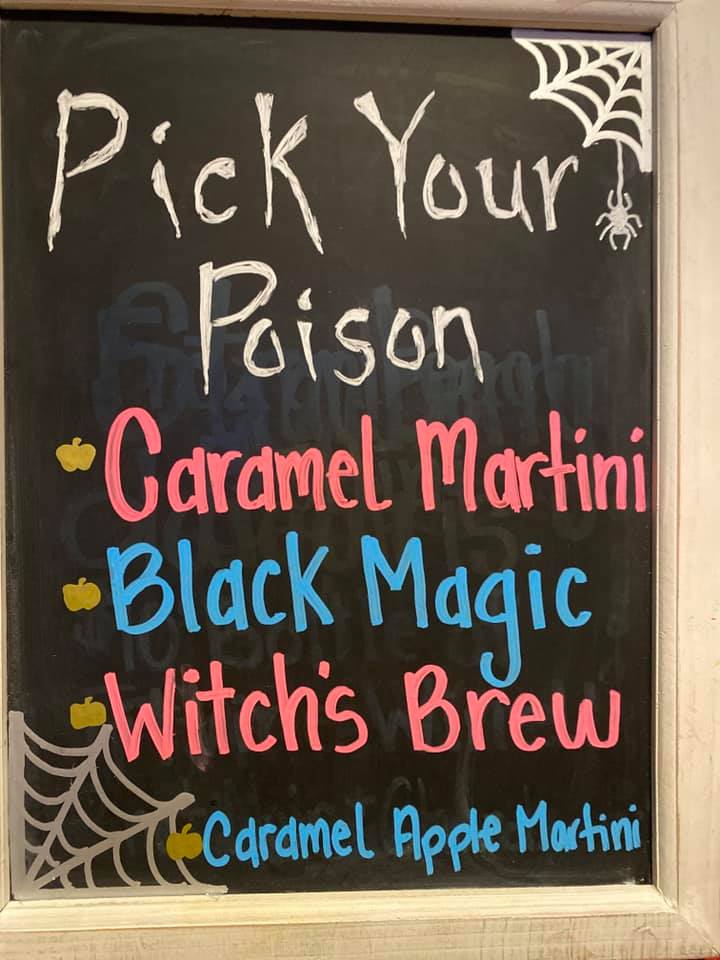 Pick Your
Poison
Caramel Martini
Black Magic
Witch's Brew
Caramel Apple Martini